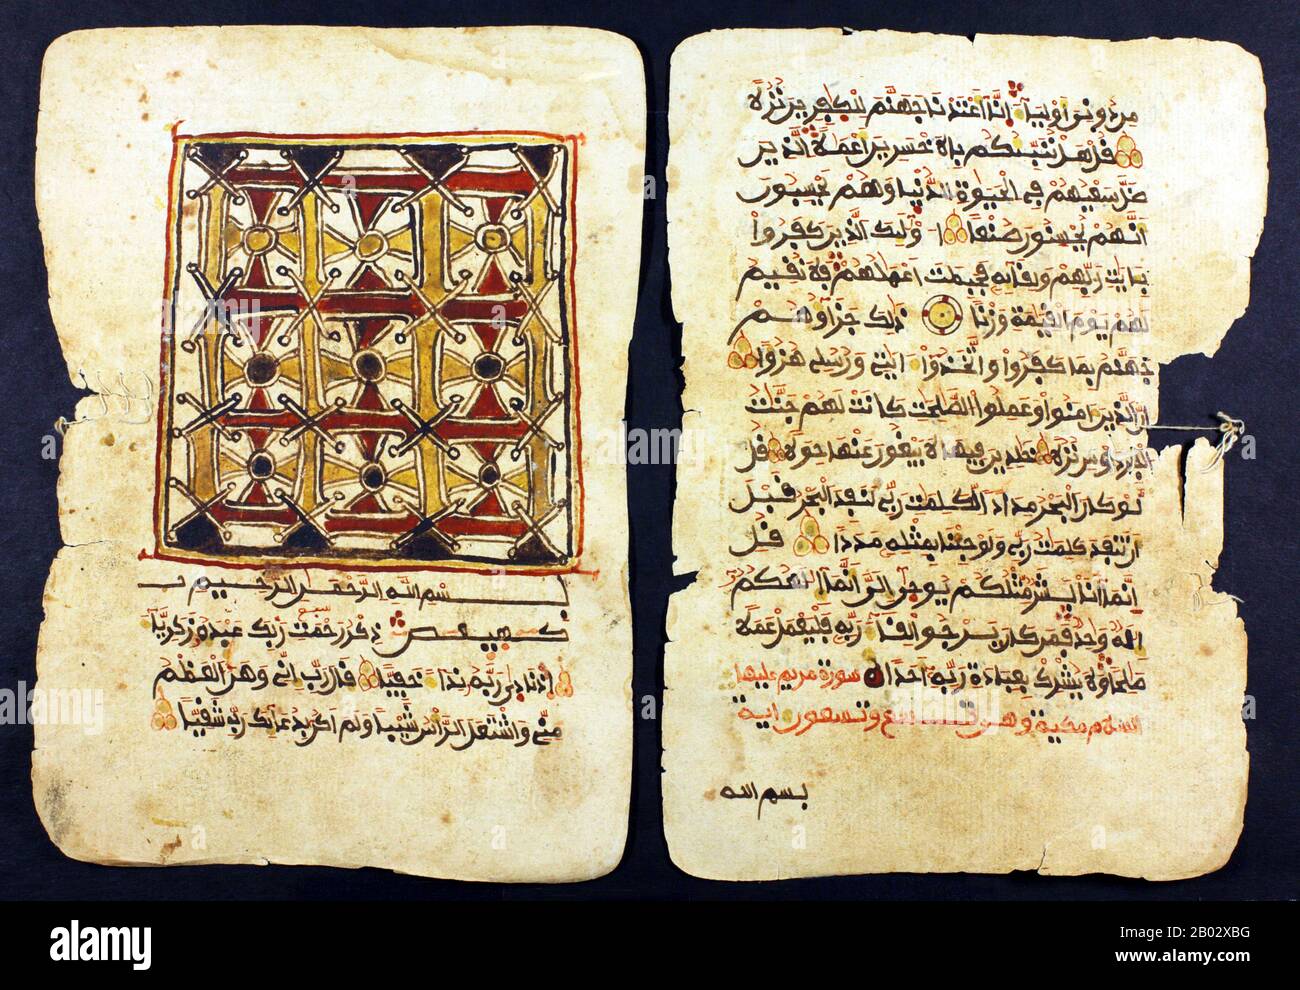 من دوني اولياء انا اعتدنا جهنم للكفرين نزلا
قل هل ننبئكم بالاخسرين اعملا الذين
ضل سعيهم في الحيوة الدنيا وهم يحسبون
انهم يحسنون صنعا اولئك الذين كفروا
بايت ربهم ولقائه فحبطت اعملهم فلا نقيم
لهم يوم القيمة وزنا ذلك جزاؤهم
جهنم بما كفروا واتخذوا ايتي ورسلي هزوا
ان الذين امنوا وعملوا الصلحت كانت لهم جنت
الفردوس نزلا خلدين فيها لا يبغون عنها حولا قل
لو كان البحر مدادا لكلمت ربي لنفد البحر قبل
ان تنفد كلمت ربي ولو جئنا بمثله مددا قل
انما انا بشر مثلكم يوحى الي انما الهكم
اله واحد فمن كان يرجوا لقاء ربه فليعمل عملا
صلحا ولا يشرك بعبادة ربه احدا سورة مريم عليها
السلام مكية وهي تسع وتسعون اية
بسم الله
بسم الله الرحمن الرحيم
كهيعص ذكر رحمت ربك عبده زكريا
اذ نادى ربه نداء خفيا قال رب اني وهن العظم
مني واشتعل الراس شيبا ولم اكن بدعائك رب شقيا
alamy
Image ID: 2B02XBG
www.alamy.com